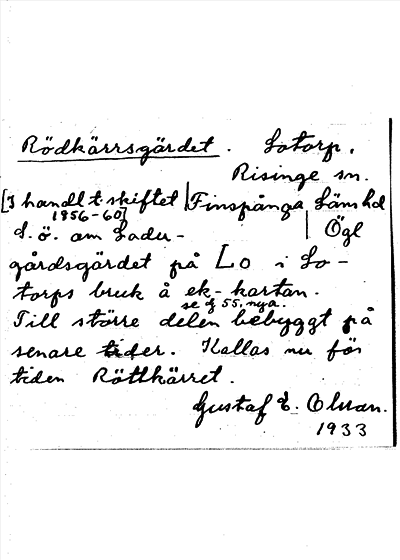 Rödkärrsgärdet. Lotorp.
Risinge sn.
[I handl t skiftet | Finspånga Läns hd
1856-60]
S. ö. om Ladu- | Ögl
gårdsgärdet på Lo i Lo-
torps bruk å ek-kartan.
se g 55, nya.
Till större delen bebyggt på
senare tider. Kallas nu för
tiden Röttkärret.
Gustaf E. Olsson.
1933